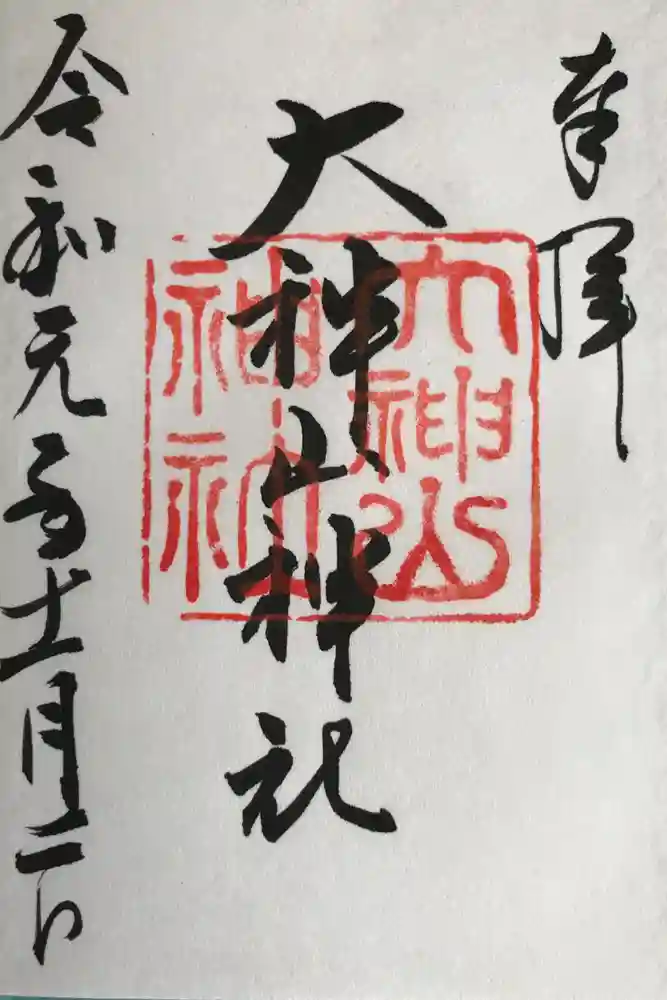 奉拝
大神山神社
大神山神社
令和元年十一月二日